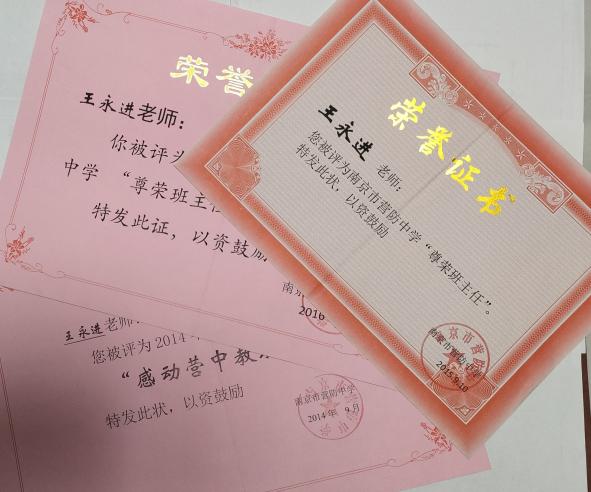 荣誉
王永进老师：
你被评为
中学 “尊荣班主任
特发此证，以资鼓励
南京
2016
荣誉证书
王永进 老师：
您被评为南京市营防中学“尊荣班主任”。
特发此状，以资鼓励
南京市营防中学
2015.9.10
王永进老师：
您被评为 2014
“感动营中教
特发此状，以资鼓励
南京市营防中学
2014 年 9 月